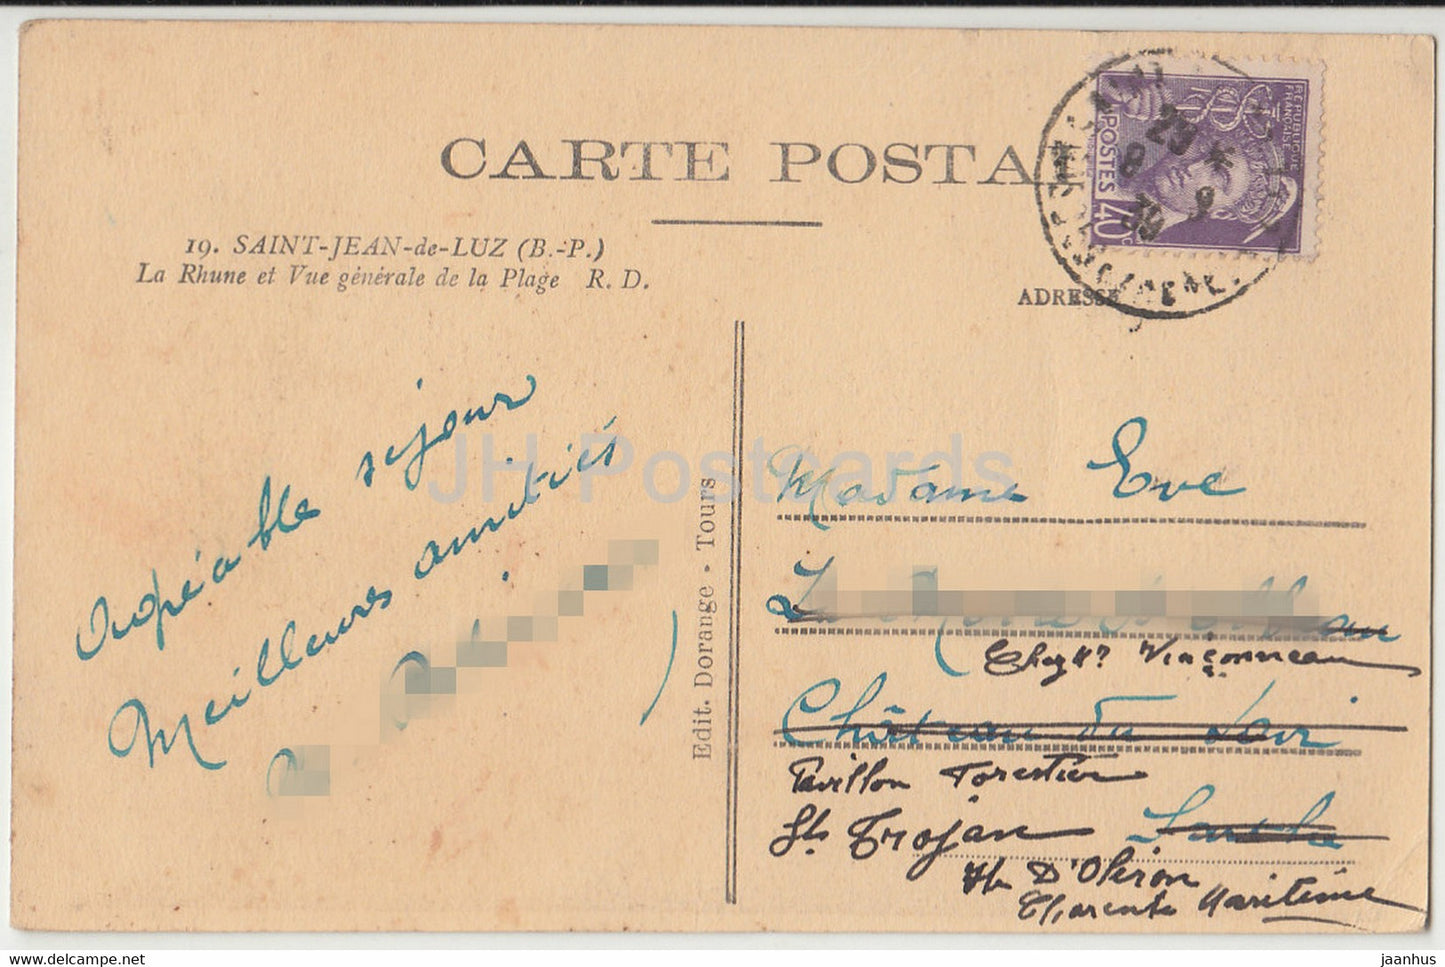 CARTE POSTA
19. SAINT-JEAN-de-LUZ (B.-P.)
La Rhune et Vue générale de la Plage R. D.
REPUBLIQUE
FRANÇAISE
POSTES 40c
29
8
39
ADRESSE
agréable séjour
Meilleures amitiés
Edit. Dorange - Tours
Madame Eve
Chez Mr Vinçonneau
Château du Loir
Pavillon Forestier
St Trojan Sarthe
Ile D'Oléron
Charente Maritime
JH Postcards
www.delcampe.net
jaanhus